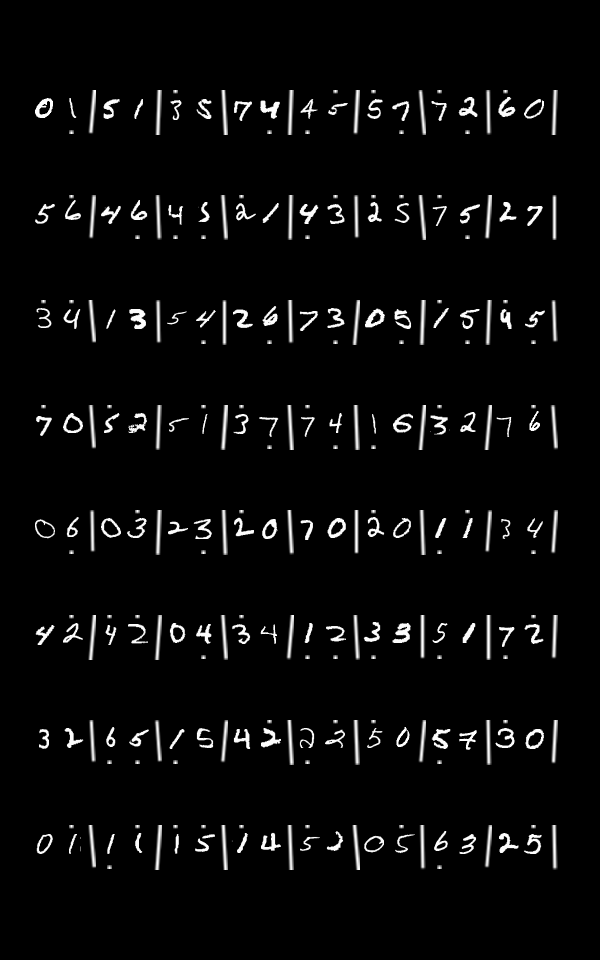 0 1̣ | 5 1 | 3̇ 5 | 7 4̣ | 4̣ 5̇ | 5̇ 7̣ | 7̇ 2̣ | 6̇ 0 |
5 6̇ | 4 6̣ | 4̣ 5̣ | 2̇ 1 | 4̣ 3̇ | 2̇ 5̇ | 7̇ 5̣ | 2 7 |
3̇ 4̇ | 1 3 | 5 4̣ | 2 6̣ | 7 3̣ | 0 5̣ | 1̇ 5̣ | 4̇ 5̣ |
7̇ 0 | 5̇ 2 | 5 1̇ | 3̇ 7̣ | 7̇ 4̣ | 1̣ 6 | 3̇ 2 | 7 6̇ |
0 6̣ | 0 3̇ | 2 3̣ | 2̇ 0 | 7 0 | 2̇ 0 | 1̣ 1̇ | 3 4̣ |
4 2̇ | 4̇ 2̇ | 0 4̣ | 3̇ 4 | 1̣ 2̣ | 3̣ 3 | 5̣ 1 | 7̣ 2̇ |
3 2 | 6̣ 5̣ | 1̣ 5 | 4 2̇ | 2̣ 2̇ | 5̇ 0 | 5̣ 7 | 3̇ 0 |
0 1̇ | 1̣ 1̇ | 1̇ 5̇ | 1̇ 4 | 5 2 | 0 5̇ | 6̣ 3 | 2 5̇ |